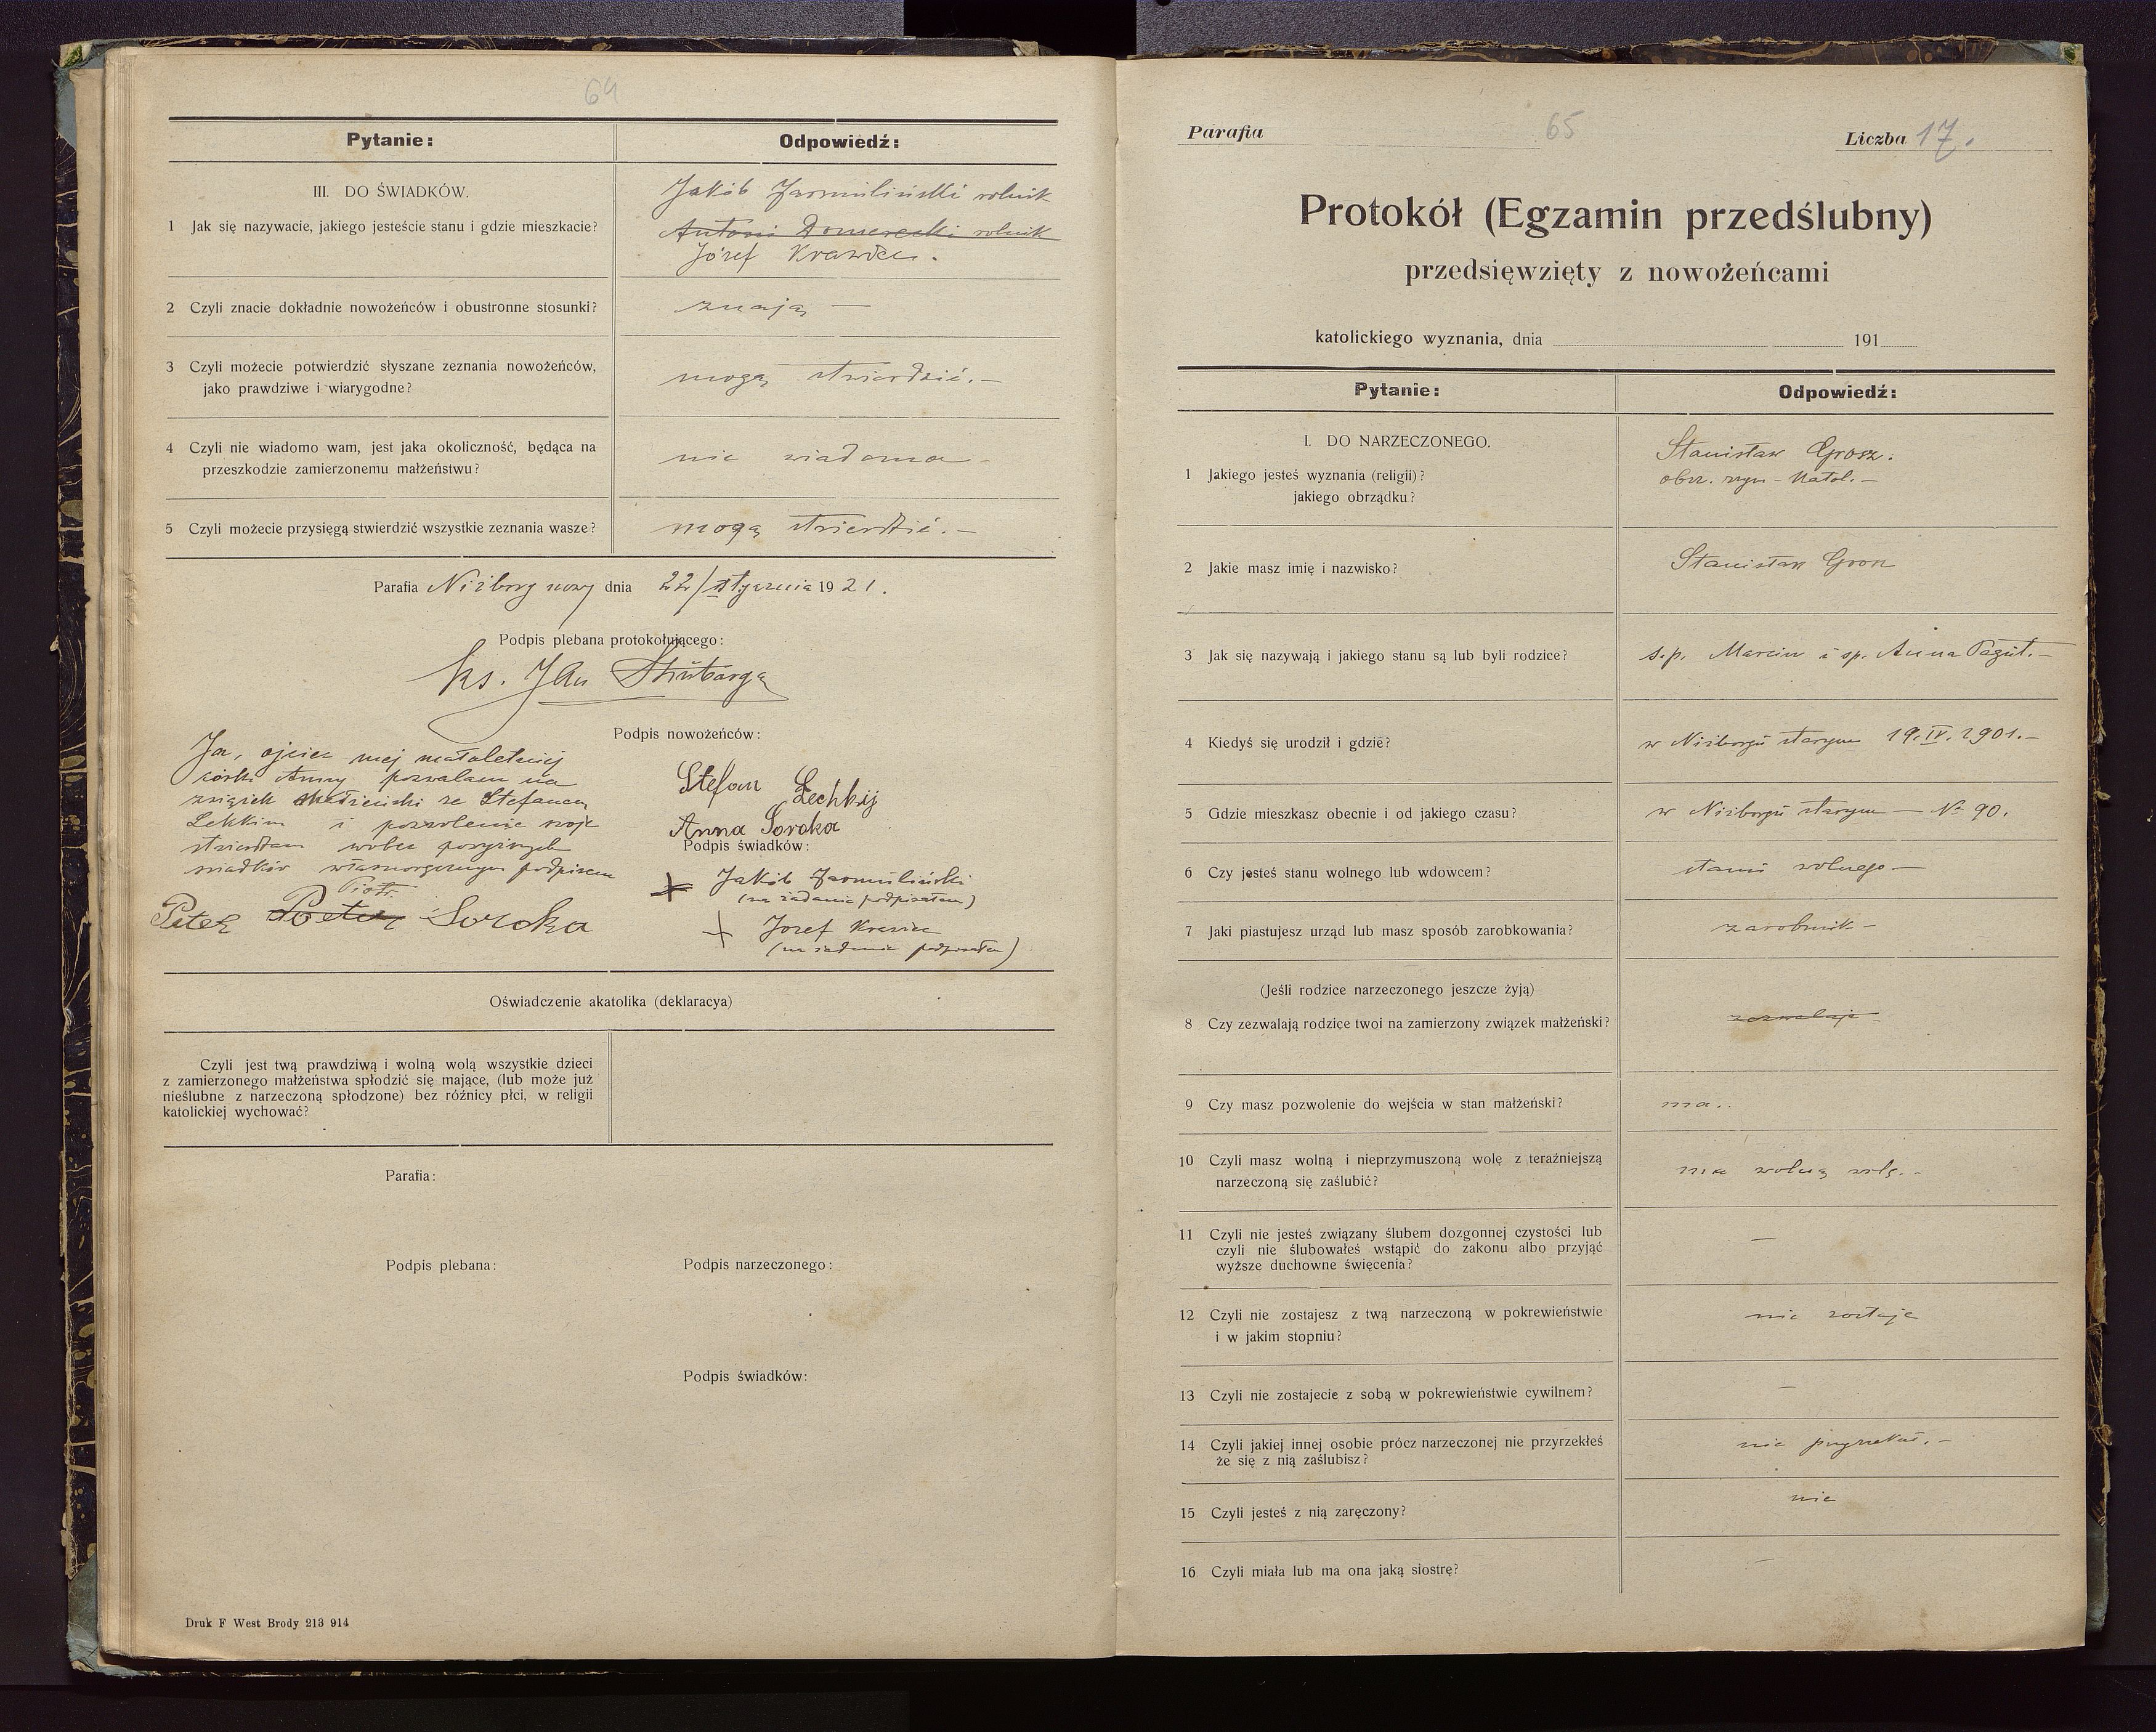 64
Pytanie:
Odpowiedź:
III. DO ŚWIADKÓW.
1 Jak się nazywacie, jakiego jesteście stanu i gdzie mieszkacie?
Jakób Jarmuliński rolnik
Antoni rolnik
Józef
2 Czyli znacie dokładnie nowożeńców i obustronne stosunki?
znają —
3 Czyli możecie potwierdzić słyszane zeznania nowożeńców,
jako prawdziwe i wiarygodne?
mogą stwierdzić. —
4 Czyli nie wiadomo wam, jest jaka okoliczność, będąca na
przeszkodzie zamierzonemu małżeństwu?
nie wiadoma
5 Czyli możecie przysięgą stwierdzić wszystkie zeznania wasze?
mogą stwierdzić. —
Parafia Niżborg nowy dnia 22/stycznia 1921.
Podpis plebana protokołującego:
ks. Jan
Podpis nowożeńców:
Ja, ojciec mej małoletniej
córki Anny pozwalam na
związek małżeński ze Stefanem
Lekkim i pozwolenie moje
stwierdzam wobec powyższych
świadków własnoręcznym podpisem
Piotr
Peter Peter Soroka
Stefan Lechkij
Anna Soroka
Podpis świadków:
Jakób Jarmuliński
(na żądanie podpisałem)
Jozef
(na żądanie podpisałem)
Oświadczenie akatolika (deklaracya)
Czyli jest twą prawdziwą i wolną wolą wszystkie dzieci
z zamierzonego małżeństwa spłodzić się mające, (lub może już
nieślubne z narzeczoną spłodzone) bez różnicy płci, w religii
katolickiej wychować?
Parafia:
Podpis plebana:
Podpis narzeczonego:
Podpis świadków:
Druk F West Brody 213 914
Parafia
65
Liczba 17.
Protokół (Egzamin przedślubny)
przedsięwzięty z nowożeńcami
katolickiego wyznania, dnia 191
Pytanie:
Odpowiedź:
I. DO NARZECZONEGO.
1 Jakiego jesteś wyznania (religii)?
jakiego obrządku?
Stanisław Grosz.
obrz. rzym - katol. —
2 Jakie masz imię i nazwisko?
Stanisław Grosz
3 Jak się nazywają i jakiego stanu są lub byli rodzice?
s.p. Marcin i sp. Anna
4 Kiedyś się urodził i gdzie?
w Niżborgu starym 19.IV.1901. —
5 Gdzie mieszkasz obecnie i od jakiego czasu?
w Niżborgu starym — No 90.
6 Czy jesteś stanu wolnego lub wdowcem?
stanu wolnego —
7 Jaki piastujesz urząd lub masz sposób zarobkowania?
zarobnik —
(Jeśli rodzice narzeczonego jeszcze żyją)
8 Czy zezwalają rodzice twoi na zamierzony związek małżeński?
zezwalają
9 Czy masz pozwolenie do wejścia w stan małżeński?
ma.
10 Czyli masz wolną i nieprzymuszoną wolę z teraźniejszą
narzeczoną się zaślubić?
ma wolną wolę. -
11 Czyli nie jesteś związany ślubem dozgonnej czystości lub
czyli nie ślubowałeś wstąpić do zakonu albo przyjąć
wyższe duchowne święcenia?
—
12 Czyli nie zostajesz z twą narzeczoną w pokrewieństwie
i w jakim stopniu?
nie zostaje
13 Czyli nie zostajecie z sobą w pokrewieństwie cywilnem?
—
14 Czyli jakiej innej osobie prócz narzeczonej nie przyrzekłeś
że się z nią zaślubisz?
nie przyrzekał. —
15 Czyli jesteś z nią zaręczony?
nie
16 Czyli miała lub ma ona jaką siostrę?
—